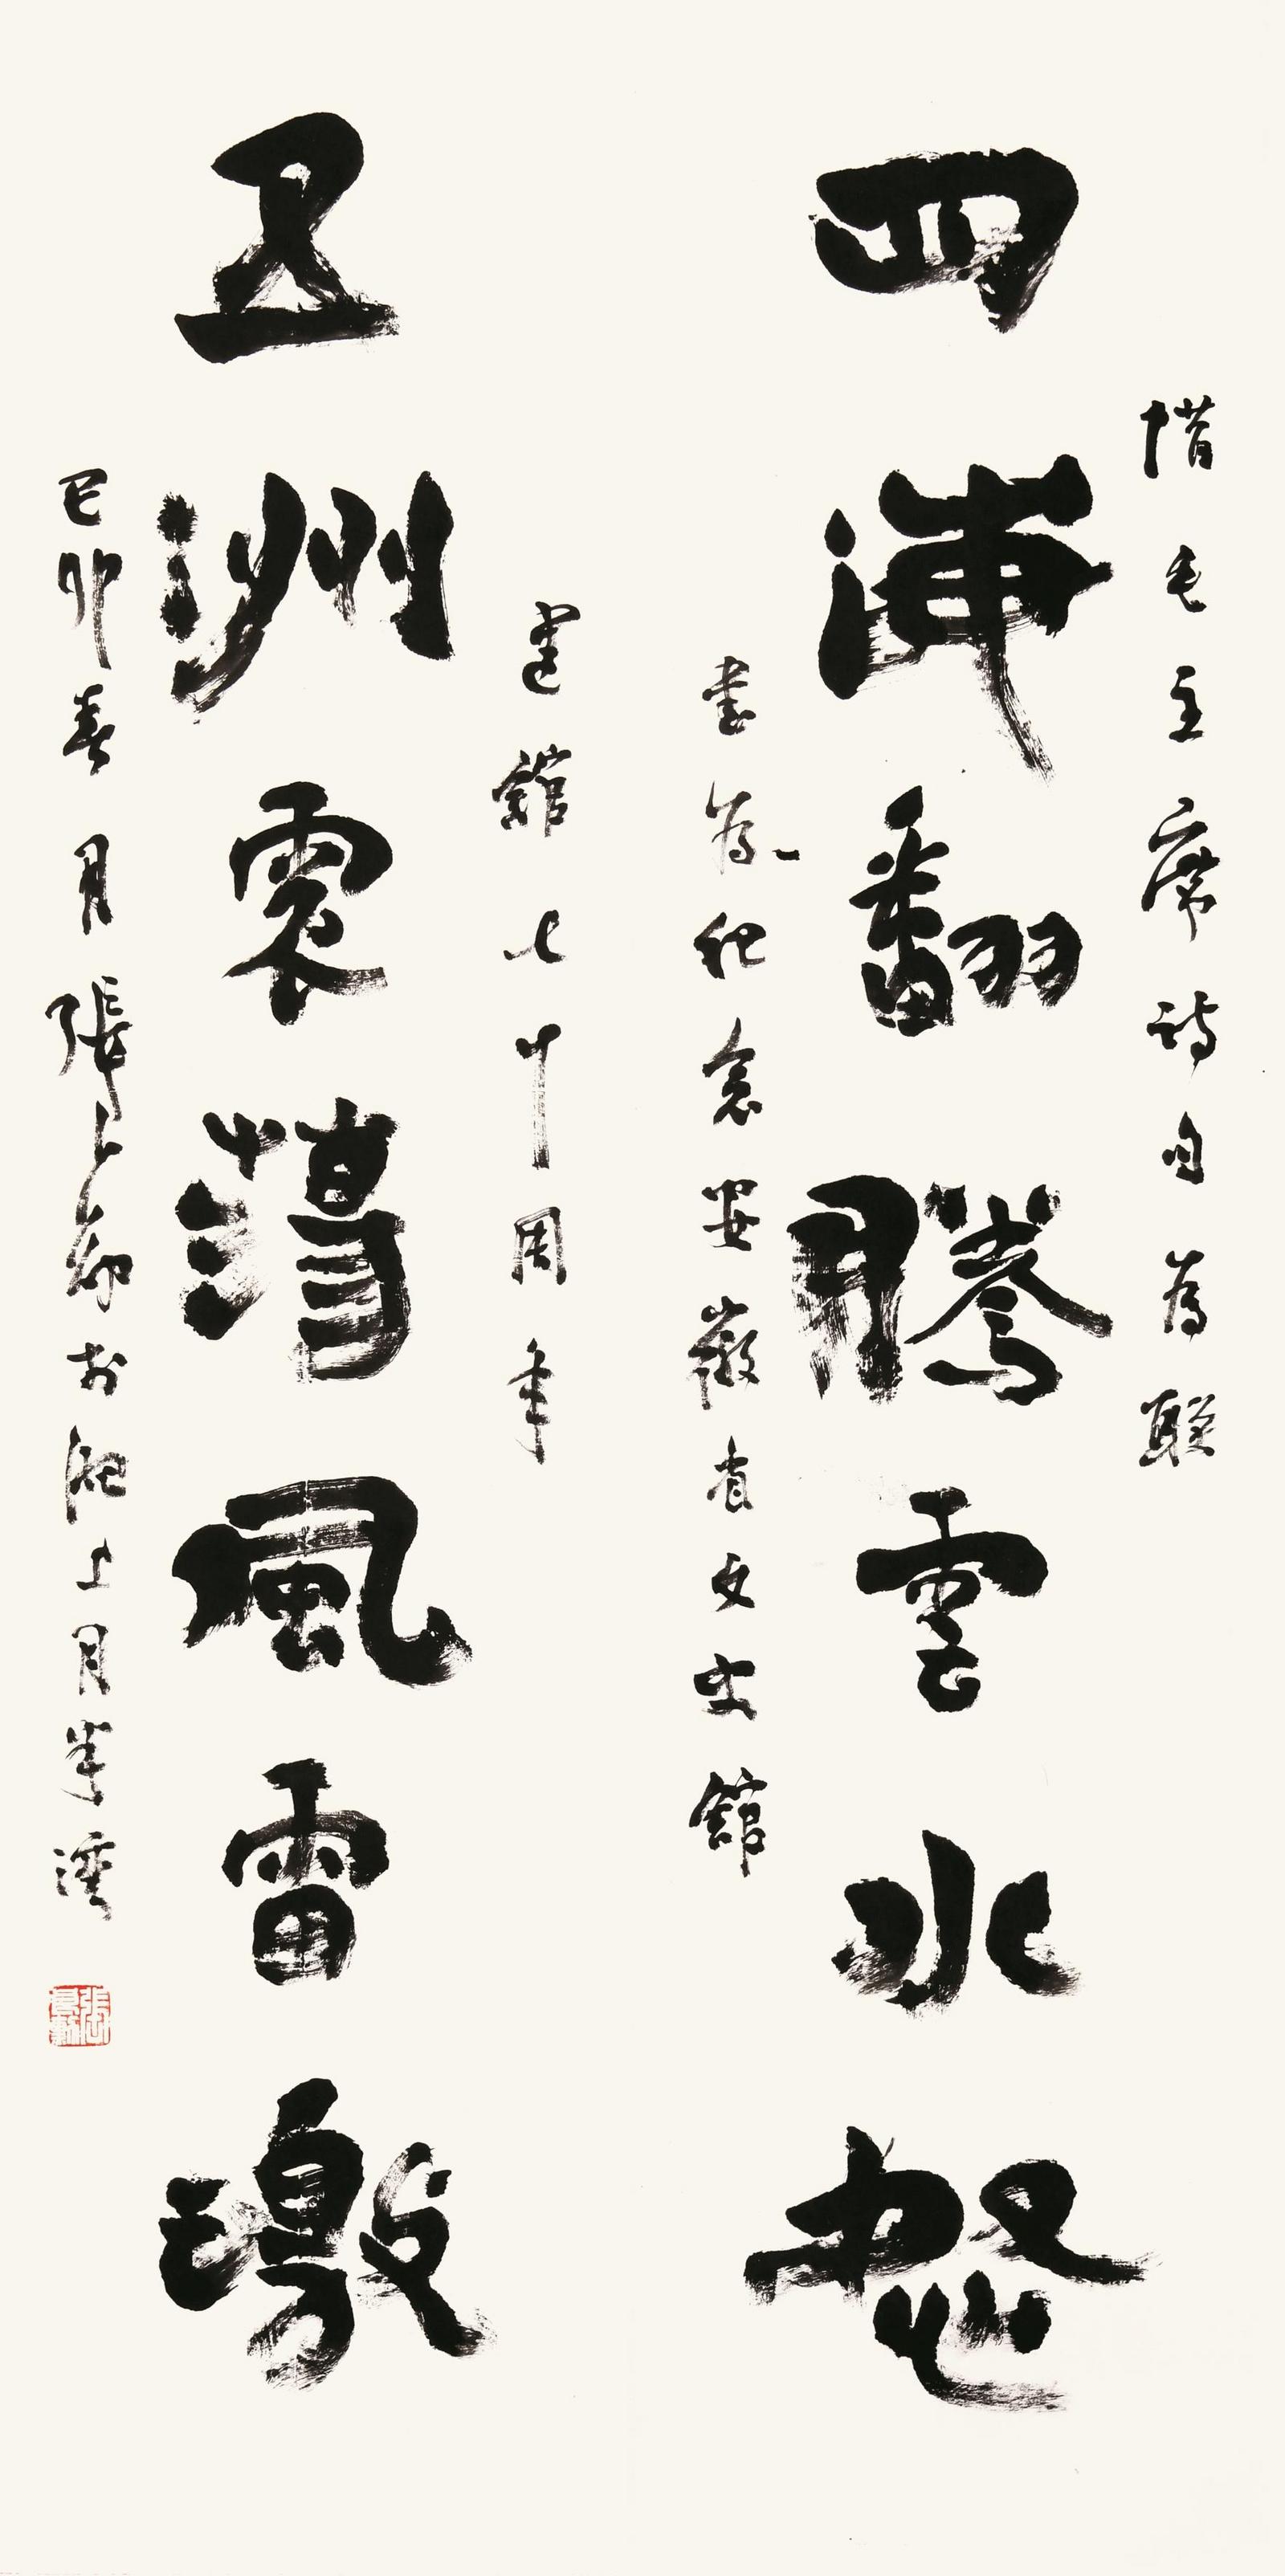 借毛主席詩句為聯
四海翻騰雲水怒
書為紀念安徽省文史館
建館七十周年
五洲震蕩風雷激
己卯春月張良勳於淝上月半灣